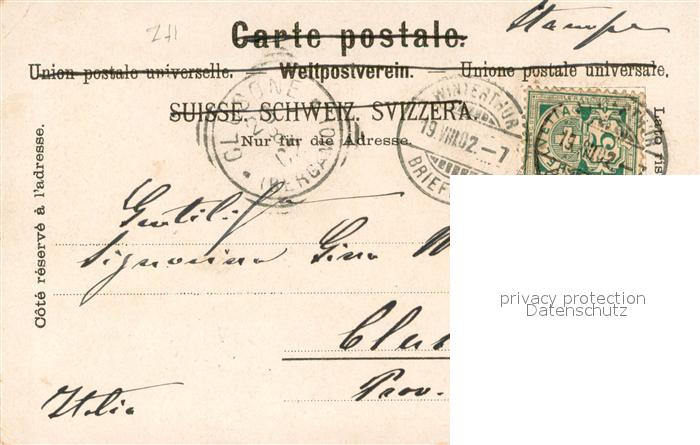 ZH
Stampe
Carte postale.
Union postale universelle. — Weltpostverein. — Unione postale universale.
SUISSE. SCHWEIZ. SVIZZERA.
Nur für die Adresse.
Côté réservé à l'adresse.
CLUSONE
(BERGAMO)
WINTERTHUR
19.VIII.02.-7
BRIEF
19.VIII.02.
5
Gentilis
Signorina Gina
Clus
Prov.
Italia
privacy protection
Datenschutz